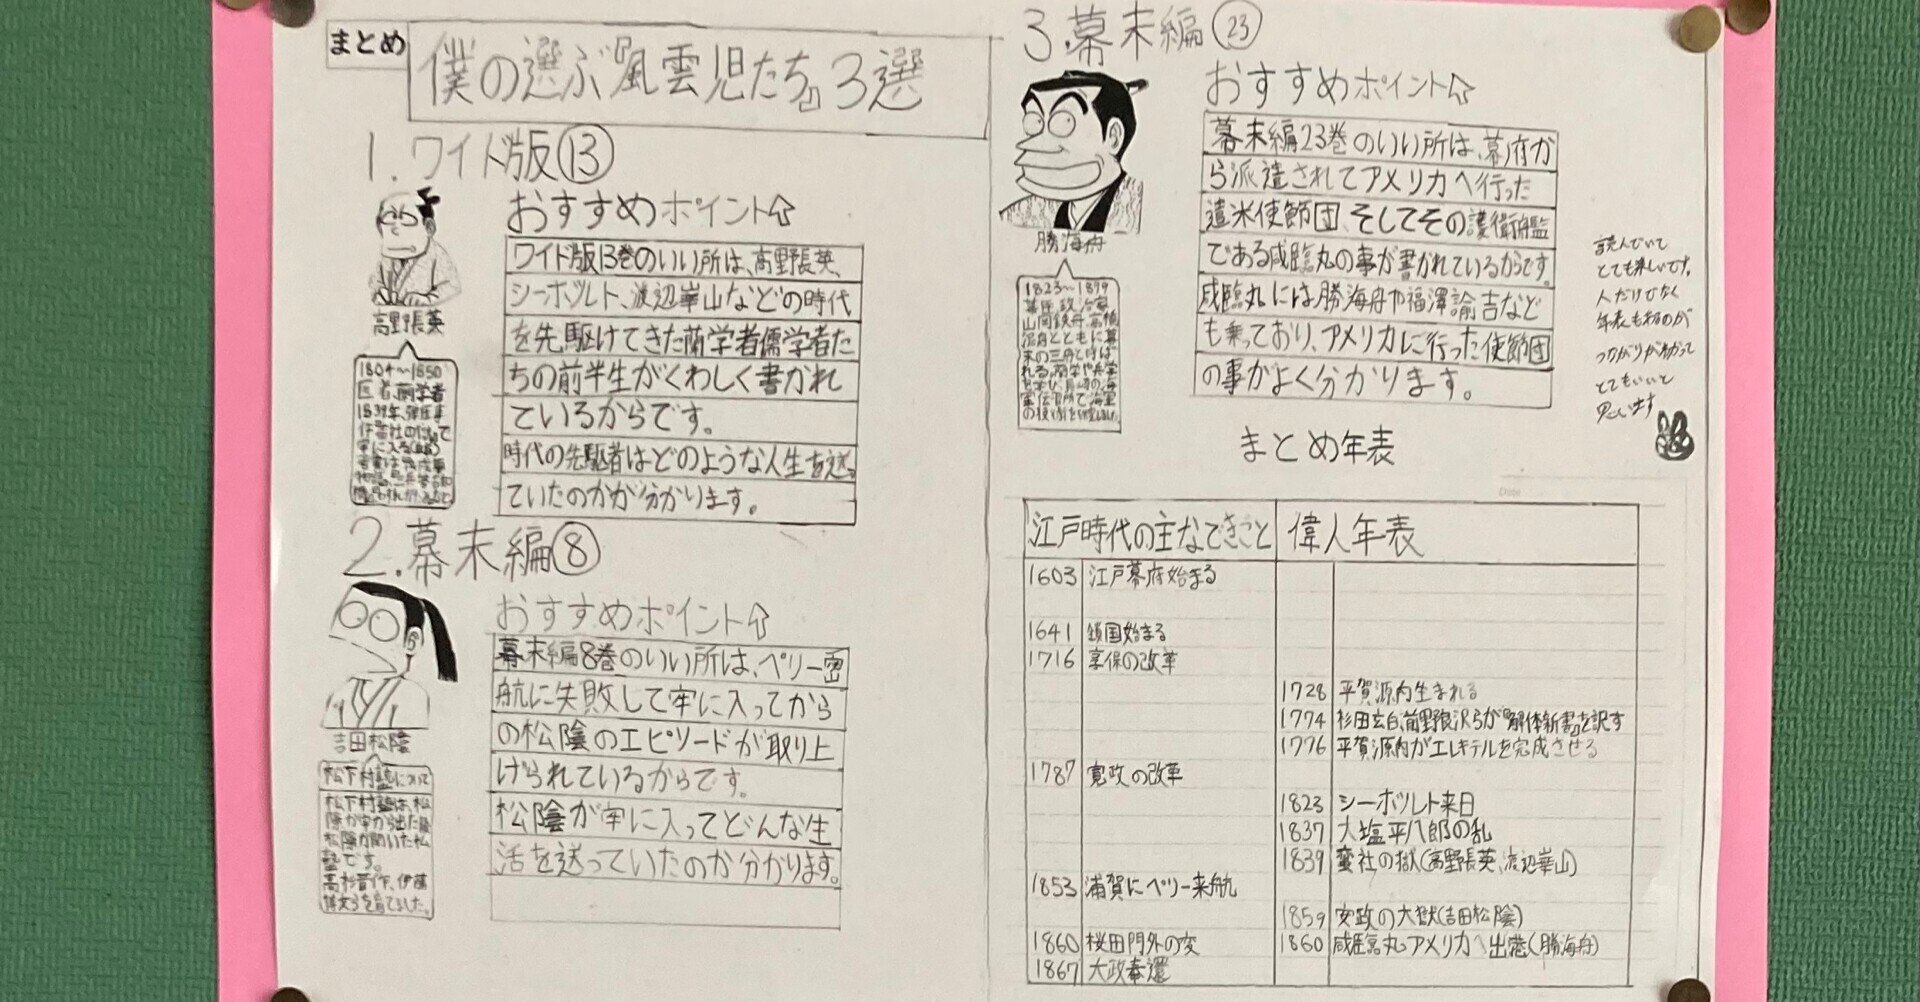 まとめ
僕の選ぶ『風雲児たち』3選
1.ワイド版⑬
おすすめポイント⇧
高野長英
1804〜1850
医者、蘭学者
ワイド版13巻のいい所は、高野長英、
シーボルト、渡辺崋山などの時代
を先駆けてきた蘭学者儒学者た
ちの前半生がくわしく書かれ
ているからです。
時代の先駆者はどのような人生を送っ
ていたのかが分かります。
2.幕末編⑧
おすすめポイント⇧
吉田松陰
松下村塾について
松下村塾は、松
陰が牢から出た後
松陰が開いた私
塾です。
高杉晋作、伊藤
博文らを育てました。
幕末編8巻のいい所は、ペリー密
航に失敗して牢に入ってから
の松陰のエピソードが取り上
げられているからです。
松陰が牢に入ってどんな生
活を送っていたのか分かります。
3.幕末編㉓
おすすめポイント⇧
勝海舟
1823〜1899
幕臣、政治家
山岡鉄舟、高橋
泥舟とともに幕
末の三舟と呼ば
れる。蘭学や兵学
を学び、長崎の海
軍伝習所で海軍
幕末編23巻のいい所は、幕府か
ら派遣されてアメリカへ行った
遣米使節団、そしてその護衛艦
である咸臨丸の事が書かれているからです。
咸臨丸には勝海舟や福澤諭吉など
も乗っており、アメリカに行った使節団
の事がよく分かります。
読んでいて
とても楽しいです。
人だけでなく
年表もあるのが
つながりがわかって
とてもいいと
思います
まとめ年表
江戸時代の主なできごと 偉人年表
1603 江戸幕府始まる
1641 鎖国始まる
1716 享保の改革
1728 平賀源内生まれる
1774 杉田玄白、前野良沢らが『解体新書』を訳す
1776 平賀源内がエレキテルを完成させる
1787 寛政の改革
1823 シーボルト来日
1837 大塩平八郎の乱
1839 蛮社の獄(高野長英、渡辺崋山)
1853 浦賀にペリー来航
1859 安政の大獄(吉田松陰)
1860 桜田門外の変
1860 咸臨丸アメリカへ出港(勝海舟)
1867 大政奉還